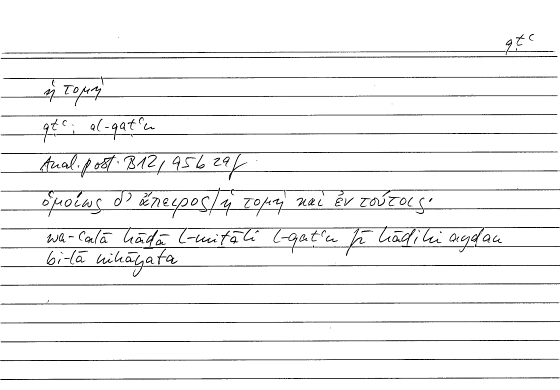 qṭʿ
ἡ τομή
qṭʿ; al-qaṭʿu
Anal. post. B12, 95b 29f.
ὁμοίως δ' ἄπειρος/ἡ τομὴ καὶ ἐν τούτοις·
wa-ʿalā hāḏā l-miṯāli l-qaṭʿu fī hāḏihi ayḍan
bi-lā nihāyata